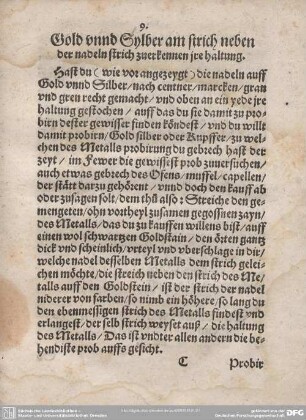 9.
Gold vnnd Sylber am strich neben
der nadeln strich zuerkennen jre haltung.
Hast du (wie vor angezeygt) die nadeln auff
Gold vnnd Silber/nach centner/marcken/gran
vnd gren recht gemacht/vnd oben an ein yede jre
haltung gestochen/auff das du sie damit zu pro-
birn dester gewisser finden köndest/vnd du willt
damit probirn/Gold silber oder Kupffer/zu wel-
chen des Metalls probirung du gebrech hast der
zeyt/im Fewer die gewissest prob zuuersuchen/
auch etwas gebrech des Ofens/muffel/capellen/
der stärt darzu gehörent/vnnd doch den kauff ab
oder zusagen solt/dem thů also: Streiche den ge-
mengeten/ohn vortheyl zusamen gegossinen zayn/
des Metalls/das du zu kauffen willens bist/auff
einen wol schwartzen Goldstain/den örten gantz
dick vnd scheinlich/vrteyl vnd vberschlage in dir/
welche nadel desselben Metalls dem strich gelei-
chen möchte/die streich neben den strich des Me-
talls auff den Goldstein/ist der strich der nadel
niderer von farben/so nimb ein höhere/so lang du
den ebenmessigen strich des Metalls findest vnd
erlangest/der selb strich weyset auß/die haltung
des Metalls/Das ist vndter allen andern die be-
hendiste prob auffs gesicht.
C Probir